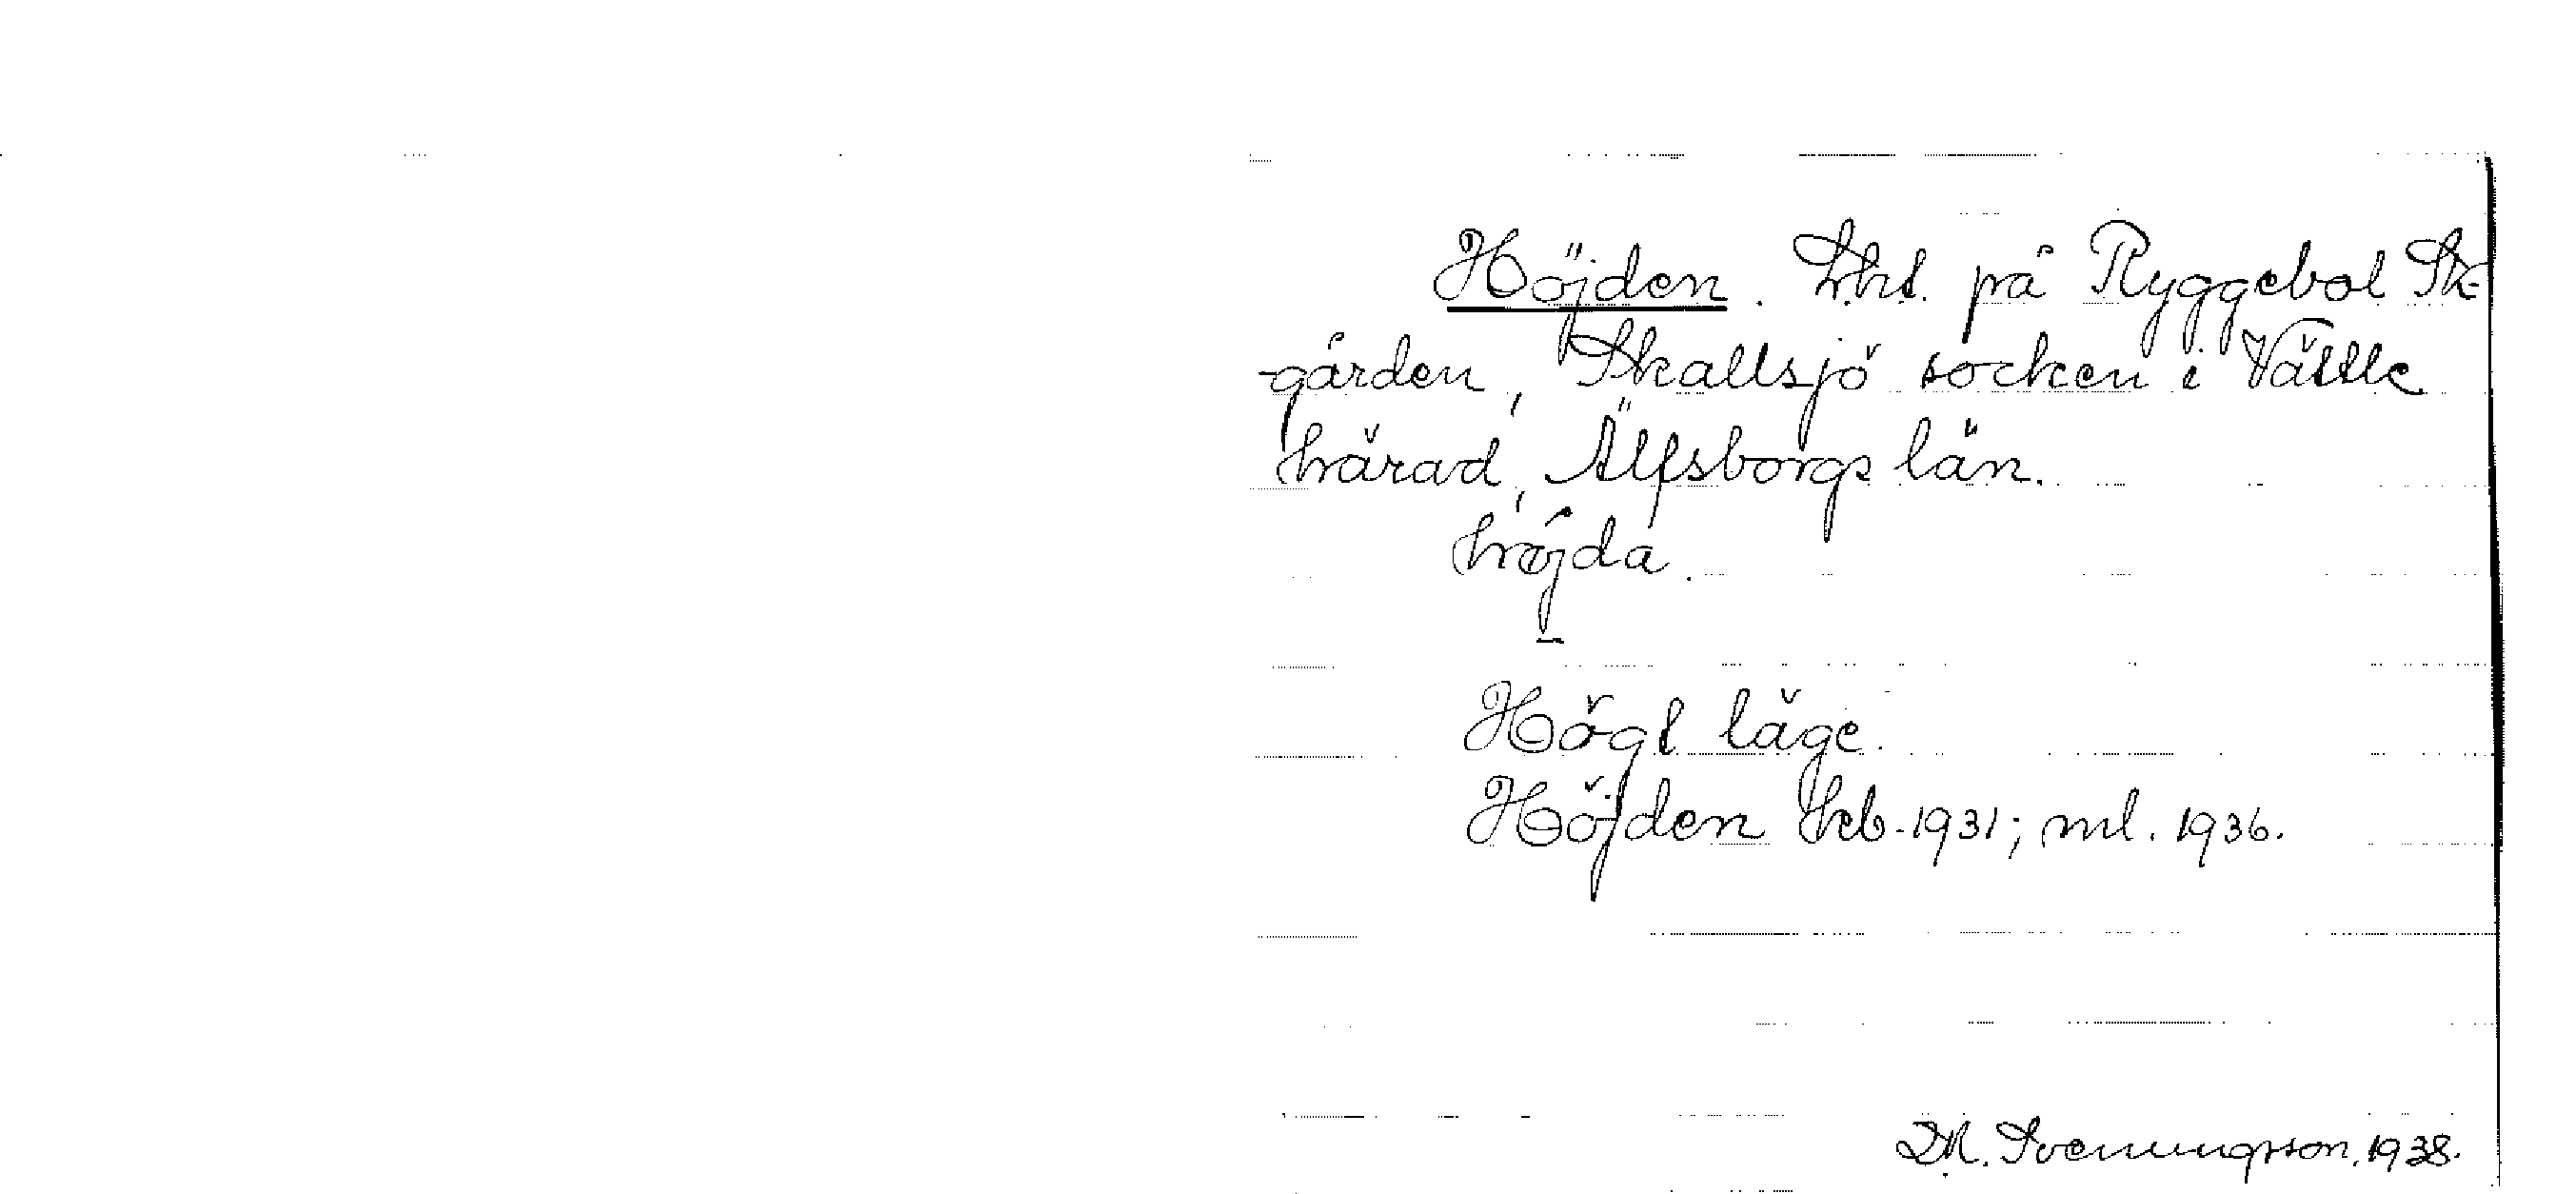 Höjden. Lht. på Ryggebol Sk-
-gården, Skallsjö socken i Vättle
härad, Älfsborgs län.
höjda.
Högt läge.
Höjden hfb. 1931; ml. 1936.
D.A. Svenningsson, 1938.